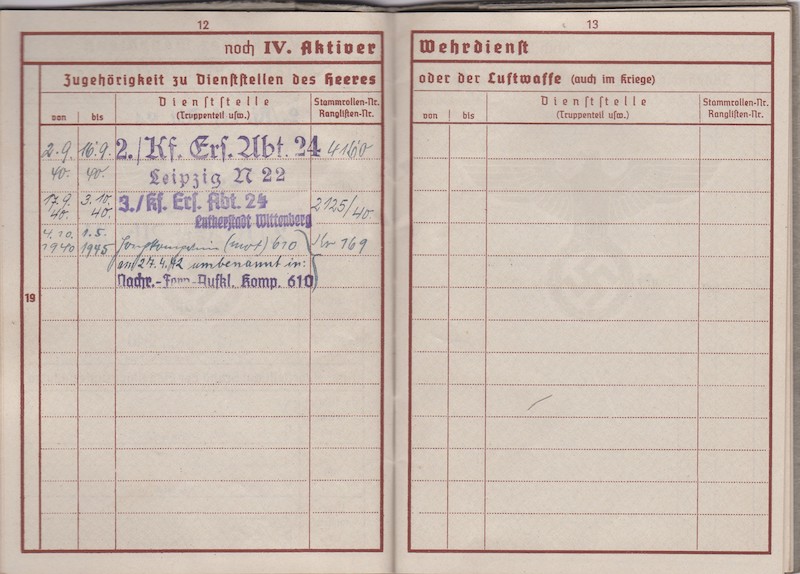 12
noch IV. Aktiver
Zugehörigkeit zu Dienststellen des Heeres
von
bis
Dienststelle
(Truppenteil usw.)
Stammrollen-Nr.
Ranglisten-Nr.
19
2.9. 40. 16.9. 40. 2./Kf. Ers. Abt. 24 4160
Leipzig N 22
17.9. 40. 3.10. 40. 3./Kf. Ers. Abt. 24 2125/40.
Lutherstadt Wittenberg
4.10. 1940 1.5. 1945 (mot) 610 Nr 169
am 27.4.42 umbenannt in:
Nachr.-Fern-Aufkl. Komp. 610
13
Wehrdienst
oder der Luftwaffe (auch im Kriege)
von
bis
Dienststelle
(Truppenteil usw.)
Stammrollen-Nr.
Ranglisten-Nr.